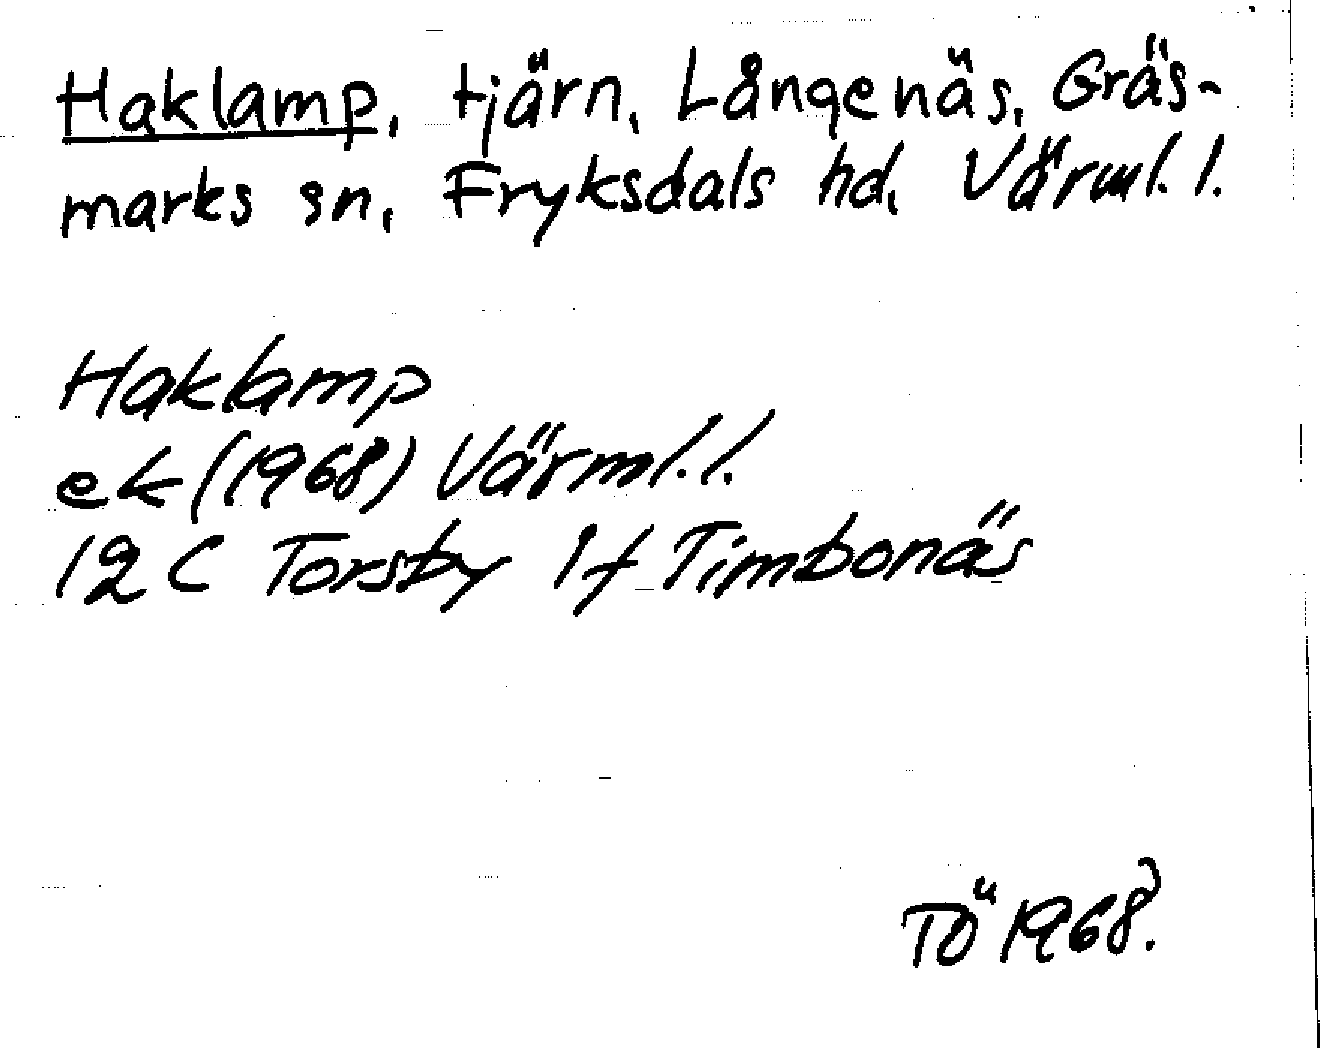 Haklamp, tjärn, Långenäs, Gräs-
marks sn, Fryksdals hd, Värml. l.
Haklamp
ek (1968) Värml. l.
12 C Torsby 1 f Timbonäs
TÖ 1968.